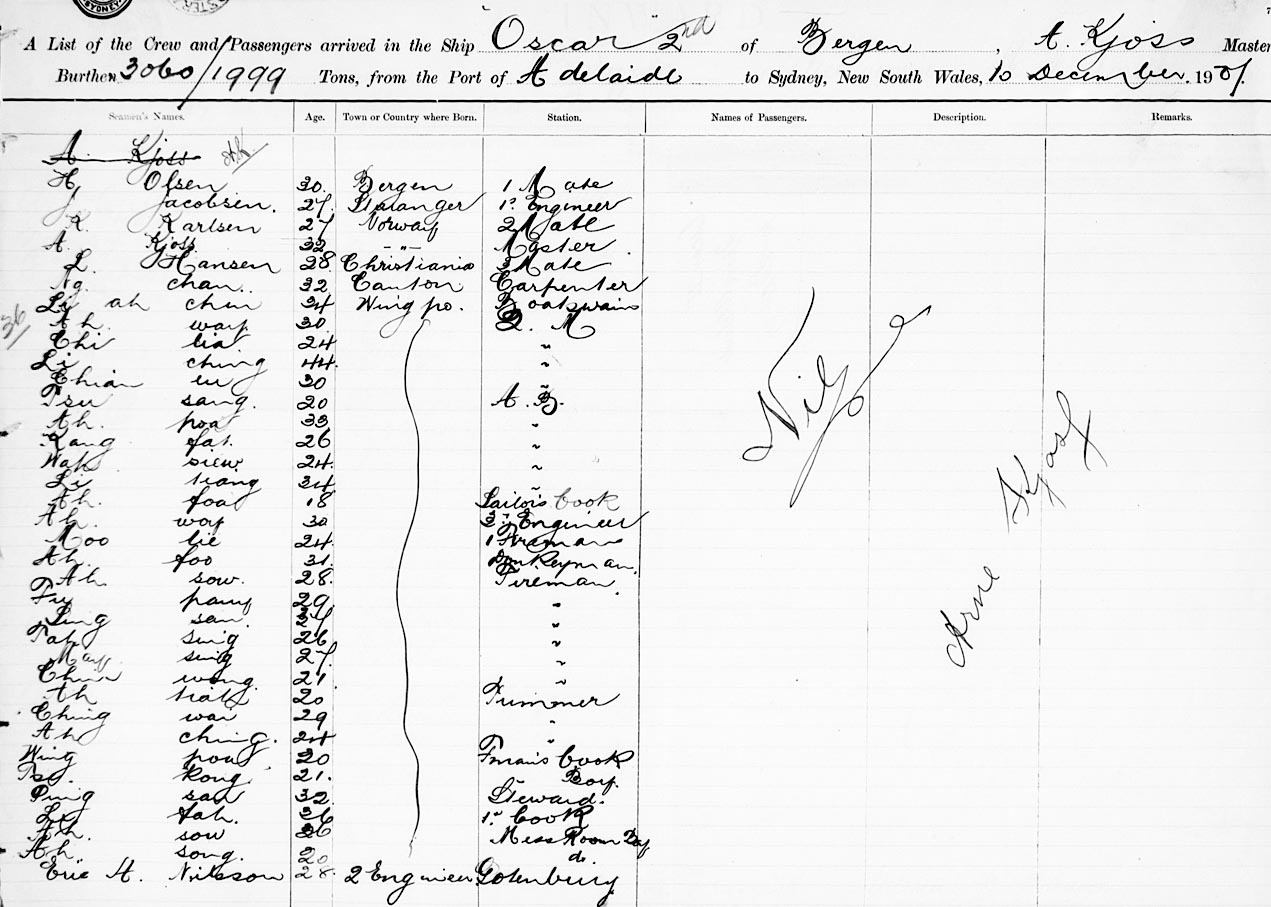 SYDNEY
A List of the Crew and Passengers arrived in the Ship Oscar 2nd of Bergen, A. Kjoss Master
Burthen 3060/1999 Tons, from the Port of Adelaide to Sydney, New South Wales, 10 December. 1901.
Seamen's Names. Age. Town or Country where Born. Station. Names of Passengers. Description. Remarks.
A. Kjoss AK
H. Olsen 30. Bergen 1 Mate
J. Jacobsen. 27. Stavanger 1st Engineer
K. Karlsen 27 Norway 2 Mate
A. Kjoss 32 -"- Master
L. Hansen 28 Christiania 3 Mate
Ng. chan. 32 Canton Carpenter
Ly ah chin 34 Ning po. Boatswain
36
Ah. way 30 Q. M
Chi lia 24 "
Li ching 44. "
Chian eu 30 "
Tsu sang. 20 A. B.
Ah. poa 33 "
Kang fat. 26 "
Wah siew 24. "
Li tiang 34 "
Ah. foa 18 Sailor's Cook
Ah. way 30 3rd Engineer
Moo lie 24. 1 Fireman
Ah. foo 31. Donkeyman.
Ah sow. 28. Fireman.
Fu pang 29 "
Ling san 37 "
Tah sing 26 "
May sing 27. "
Chin wong. 21. "
Ah tiah 20 Trimmer
Ching wai 29 "
Ah ching. 24 "
Wing poa 20 F'man's Cook
Tso. kong. 21. " Boy.
Ping san 32 Steward.
Ly fah. 36 1st Cook
Ah. sow 26 Mess Room Boy
Ah. song. 20 do.
Eric A. Nilsson 28. 2 Engineer Gotenburg
Nil
Arne Kjoss